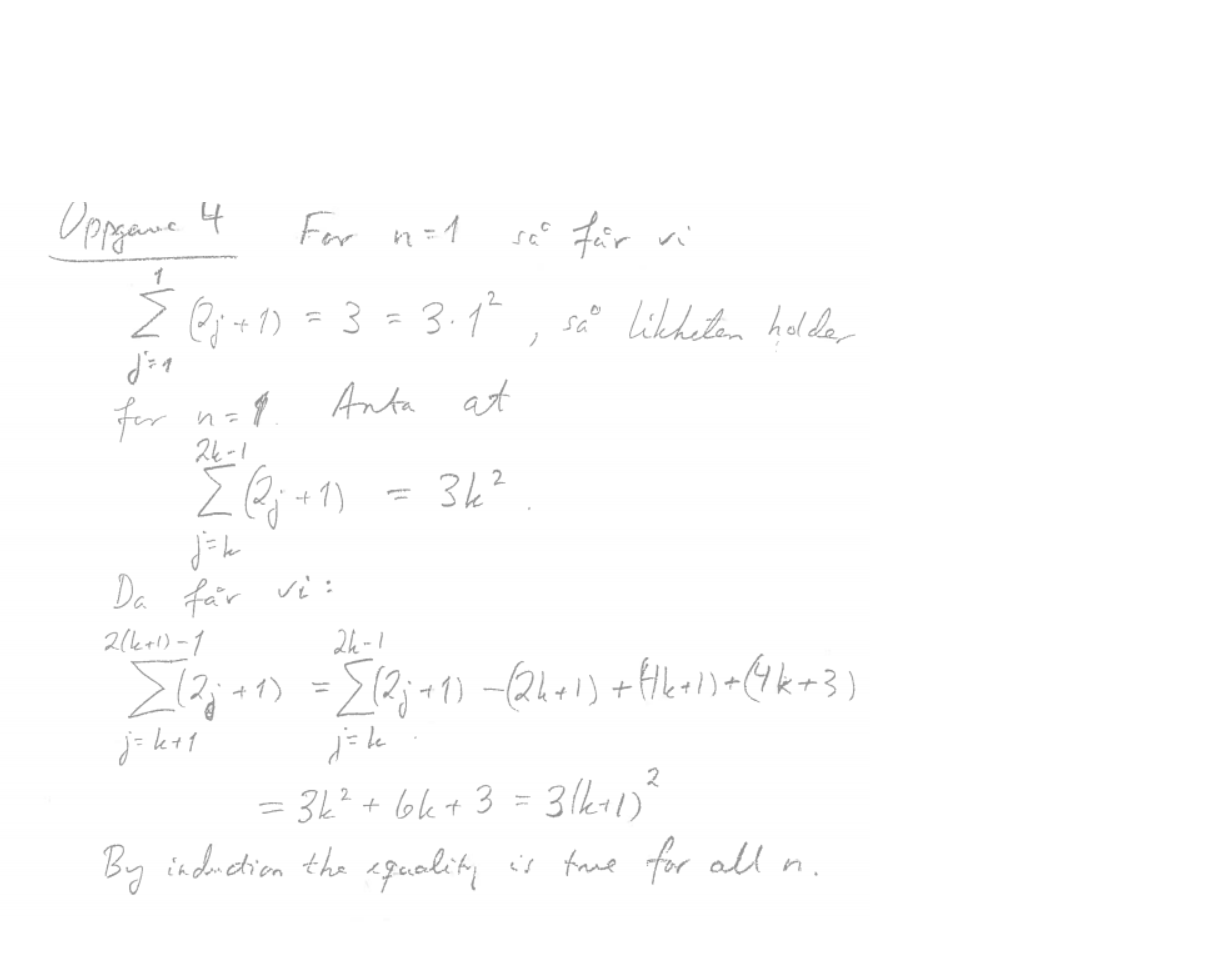 Oppgave 4 For n=1 så får vi
$\sum_{j=1}^{1} (2j+1) = 3 = 3 \cdot 1^2$, så likheten holder
for n=1. Anta at
$\sum_{j=k}^{2k-1} (2j+1) = 3k^2$.
Da får vi:
$\sum_{j=k+1}^{2(k+1)-1} (2j+1) = \sum_{j=k}^{2k-1} (2j+1) - (2k+1) + (4k+1) + (4k+3)$
$= 3k^2 + 6k + 3 = 3(k+1)^2$
By induction the equality is true for all n.